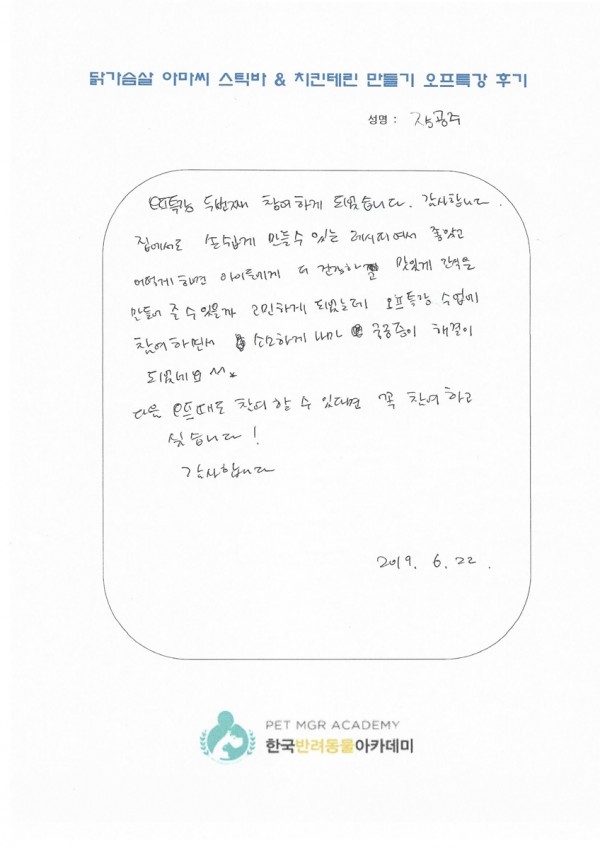 닭가슴살 아마씨 스틱바 & 치킨테린 만들기 오프특강 후기
성명 :
오프특강 두번째 참여하게 되었습니다. 감사합니다.
집에서도 손쉽게 만들수 있는 레시피여서 좋았고
어떻게 하면 아이들에게 더 건강하고 맛있게 간식을
만들어 줄 수 있을까 고민하게 되었는데 오프특강 수업에
참여하면서 소소하게 나마 궁금증이 해결이
되었네요 ^^*
다음 오프때도 참여 할 수 있다면 꼭 참여하고
싶습니다!
감사합니다
2019. 6. 22.
PET MGR ACADEMY
한국반려동물아카데미